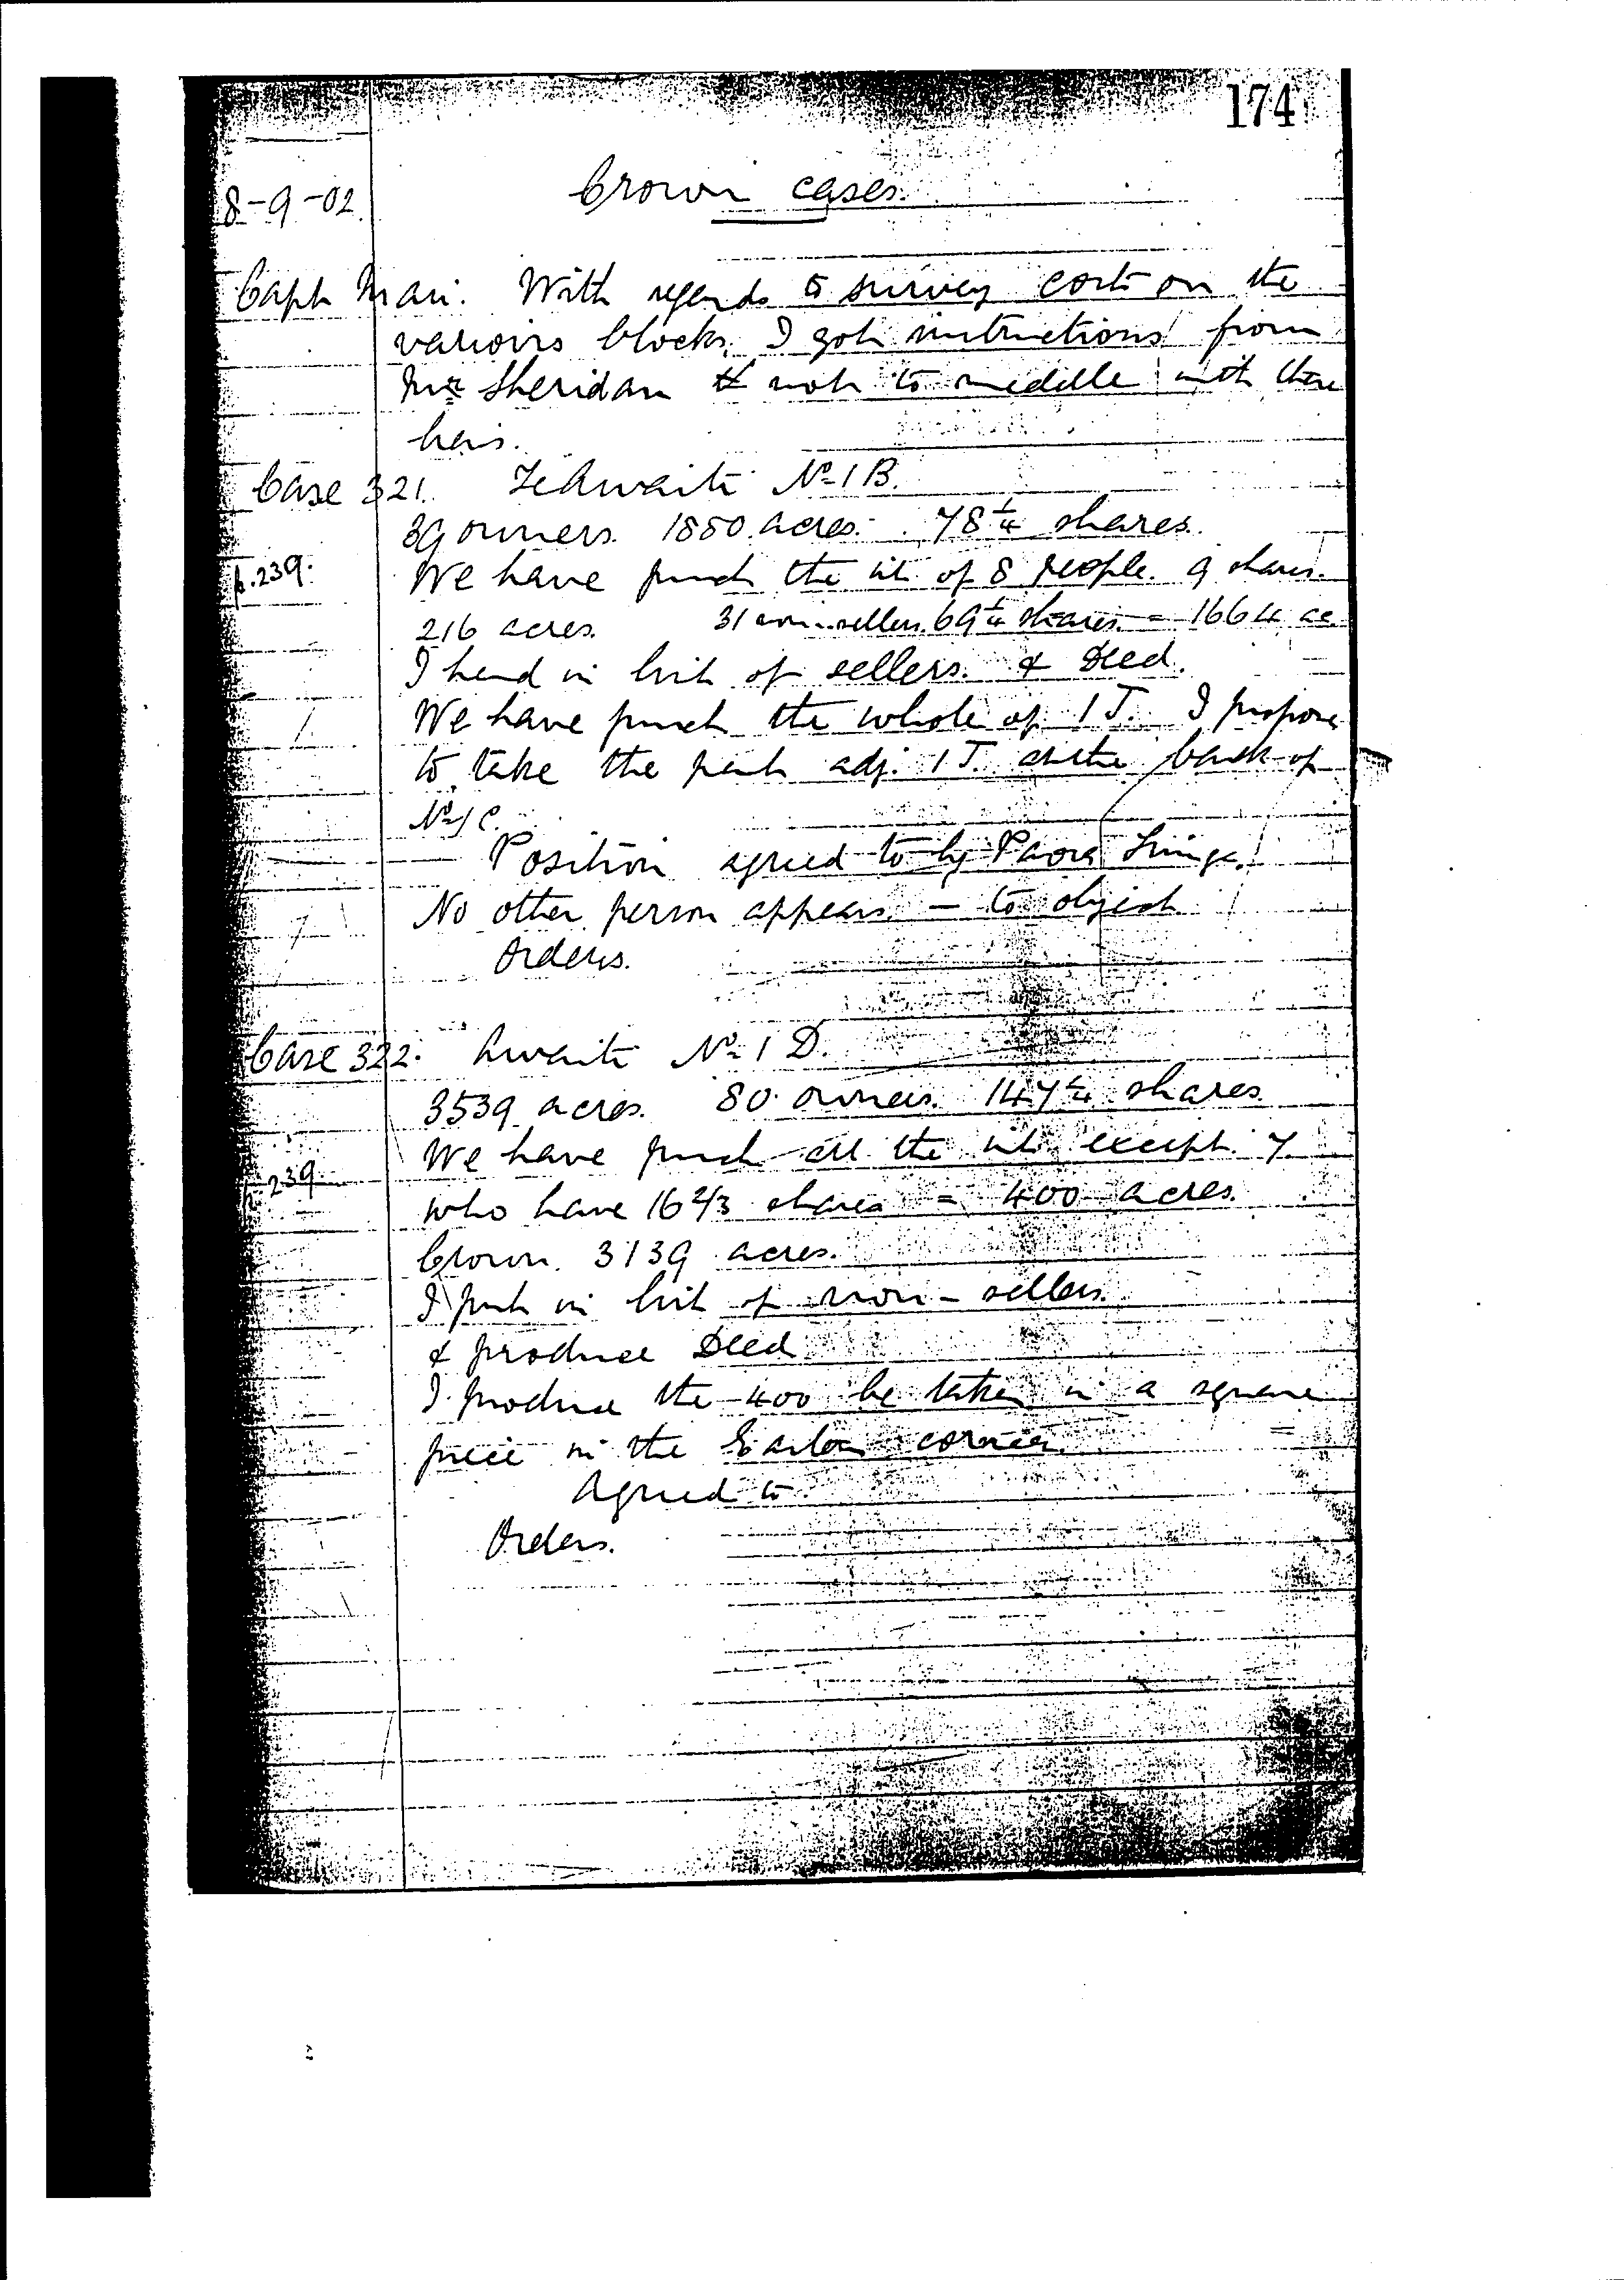 174
8-9-02. Crown cases.
Capt Mair. With regards to survey costs on the
various blocks, I got instructions from
Mr Sheridan not to meddle with these
liens.
Case 321. Te Awaiti No 1 B.
39 owners. 1880 acres. 78 1/4 shares.
p.239. We have purch the int. of 8 people. 9 shares.
216 acres. 31 non-sellers. 69 1/4 shares = 1664 ac
I hand in list of sellers. & Deed.
We have purch the whole of 1 J. I propose
to take the part adj. 1 J. at the back of
No 1 C.
Position agreed to by Paora
No other person appears – to object
Orders.
Case 322. Awaiti No 1 D.
3539 acres. 80 owners. 147 1/4 shares.
We have purch all the int. except 7
p.239. who have 16 2/3 shares = 400 acres.
Crown. 3139 acres.
I put in list of non-sellers.
& produce Deed
I produce the 400 be taken in a square
piece in the Eastern corner.
Agreed to.
Orders.